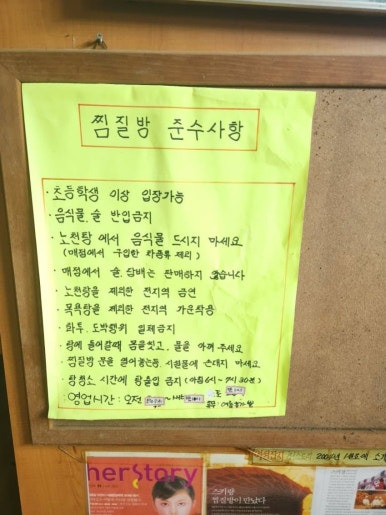 찜질방 준수사항
· 초등학생 이상 입장가능
· 음식물, 술 반입금지
· 노천탕에서 음식물 드시지 마세요
(매점에서 구입한 차종류 제외)
· 매점에서 술, 담배는 판매하지 않습니다
· 노천탕을 제외한 전지역 금연
· 목욕탕을 제외한 전지역 가운착용
· 화투, 도박행위 일체금지
· 탕에 들어갈때 몸을씻고, 물을 아껴 주세요
· 찜질방 문을 열어놓는등, 시설물에 손대지 마세요.
· 탕청소 시간에 탕출입 금지 (아침6시~7시30분)
· 영업시간: 오전
herStory
스키장
찜질방이 만났다